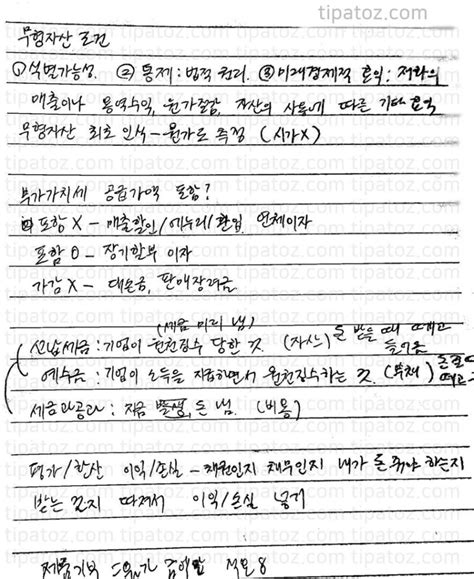 tipatoz.com
무형자산 조건
① 식별가능성. ② 통제 : 법적 권리. ③ 미래경제적 효익 : 재화의
매출이나 용역수익, 원가절감, 자산의 사용에 따른 기타 효익
무형자산 최초 인식 - 원가로 측정 (시가X)
부가가치세 공급가액 포함?
포함 X - 매출할인/에누리/환입 연체이자
포함 O - 장기할부 이자
가감 X - 대손금, 판매장려금
(세금 미리 냄)
선납세금 : 기업이 원천징수 당한 것 (자산) 돈 받을 때 떼고
예수금 : 기업이 소득을 지급하면서 원천징수하는 것. (부채)
세금과공과 : 지금 발생, 돈 냄. (비용)
평가/환산 이익/손실 - 채권인지 채무인지 내가 돈 줘야 하는지
받는 건지 따져서 이익/손실
제품기부 적요 8